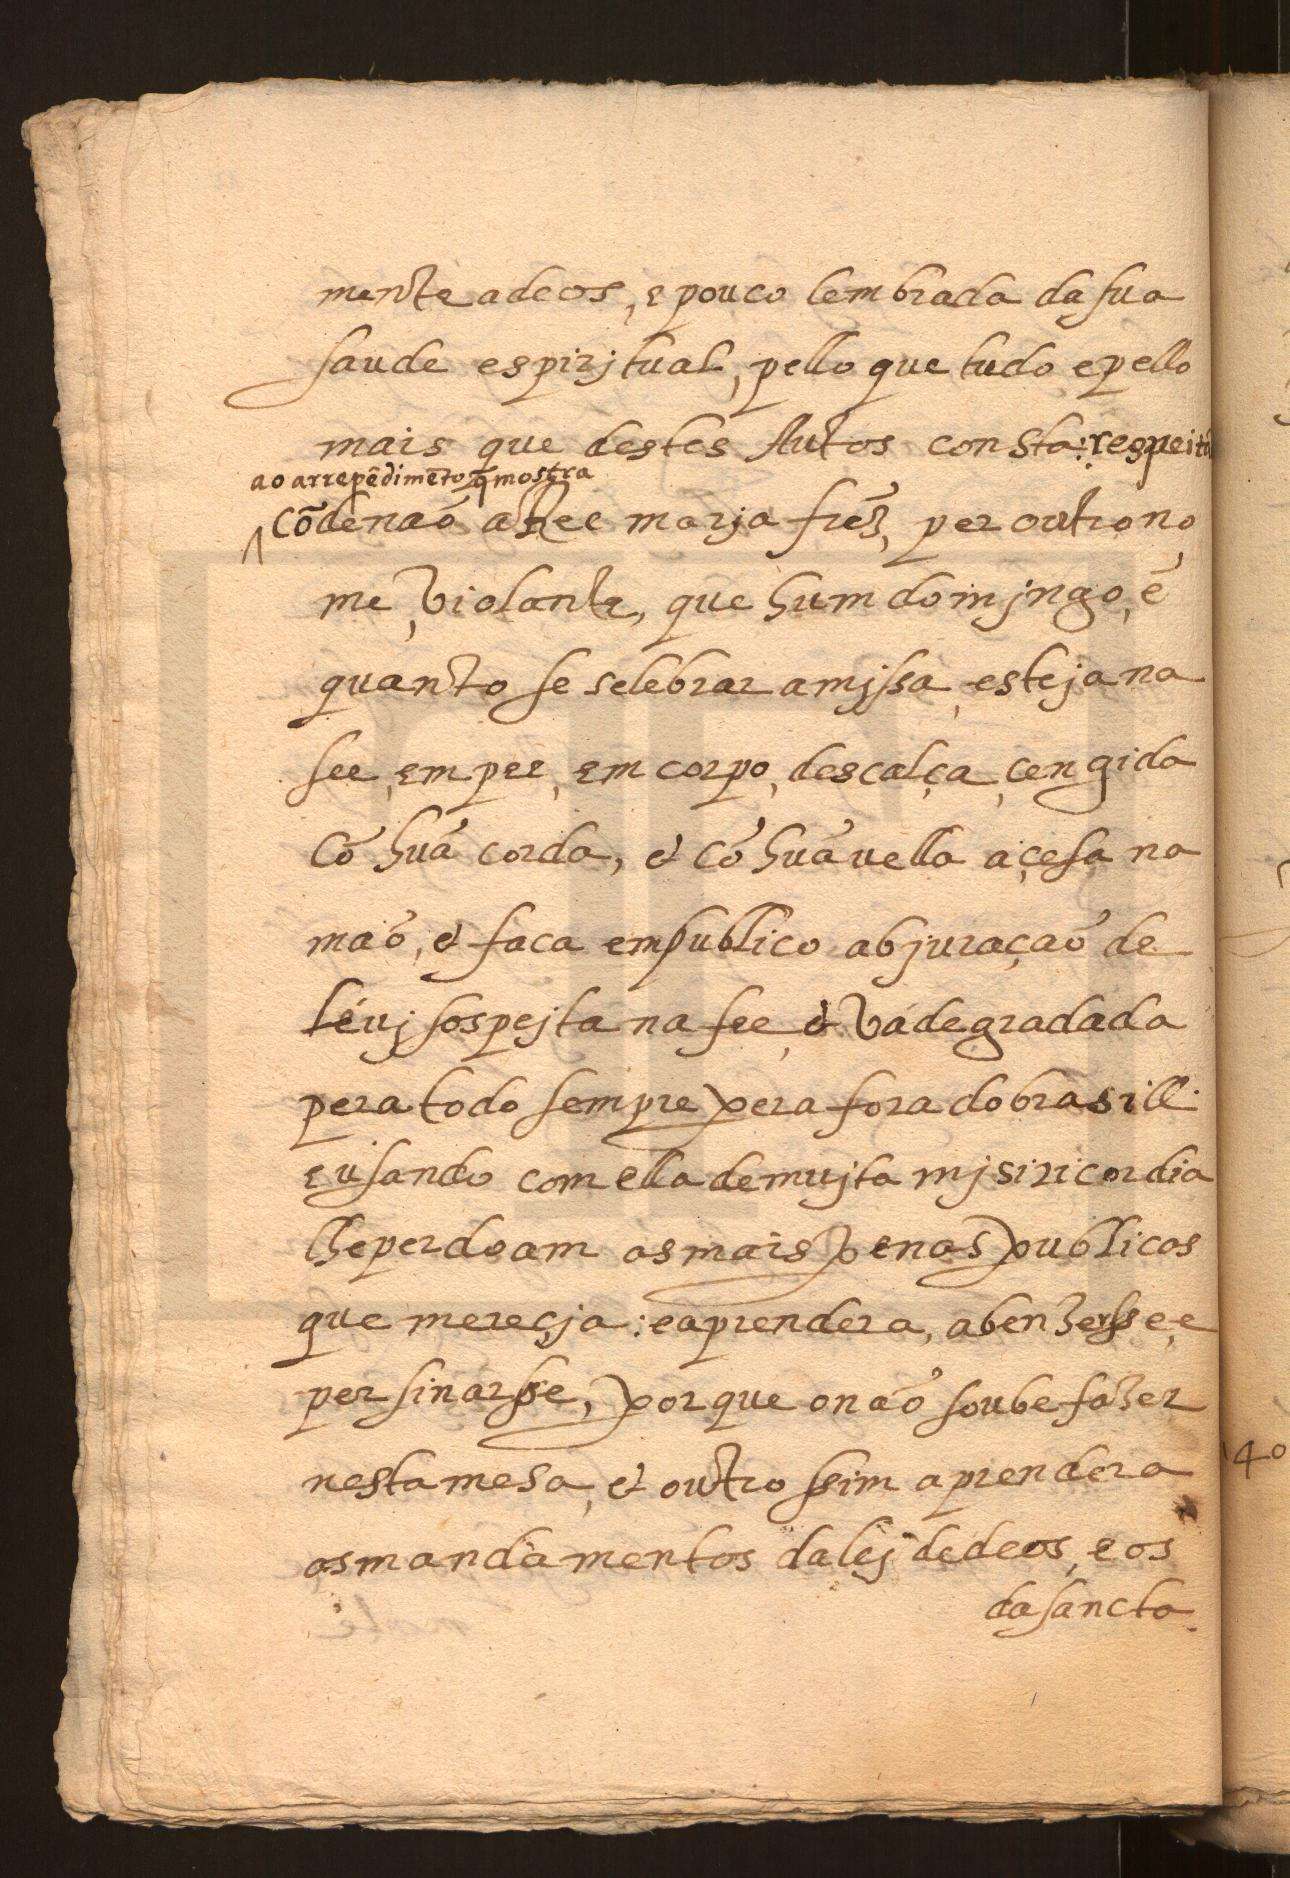 mente a deos, e pouco lembrada da sua
saude espirjtual, pello que tudo e pello
mais que destes Autos consta: respeito
ao arrepẽdimẽto q̃ mostra
cõdenaõ a Ree marja frz̃, per outro no
me, violante, que hum domjngo, ẽ
quanto se selebrar a mjssa, esteja na
see, em pee, em corpo, descalça, çengida
cõ huã corda, & cõ huã vella açesa na
maõ, & faca em publico abjuraçaõ de
leuj sospejta na fee, & vá degradada
pera todo sempre pera fora do brasill.
e usando com ella de mujta mjsiricordia
lhe perdoam as mais penas publicas
que mereçja: e aprendera, a benzersse, e
persinarsse, porque o naõ soube fazer
nesta mesa, & outro ssim aprendera
os mandamentos da lej de deos, e os
da sancta
40